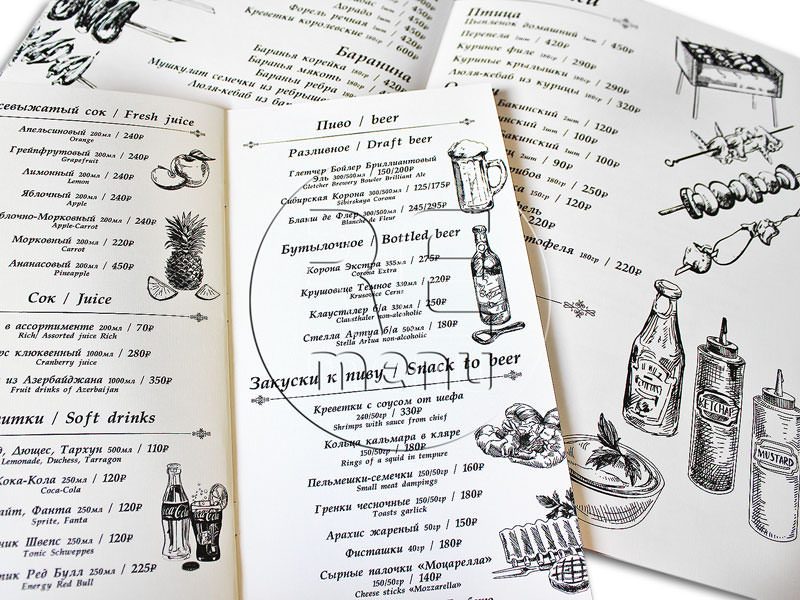 Дорадо
Форель речная 1шт / 450₽
Креветки королевские 180гр / 600₽
Баранина
Баранья корейка 180гр / 420₽
Баранья мякоть
Мушкулат семечки из ребрышек
Баранье ребра
Люля-кебаб из бар
Птица
Цыпленок домашний 1шт / 450₽
Перепела 2шт / 420₽
Куриное филе 180гр / 290₽
Куриные крылышки 180гр / 290₽
Люля-кебаб из курицы 180гр / 320₽
Бакинский 2шт / 120₽
Бакинский 1шт / 100₽
1шт / 100₽
2шт / 90₽
180гр / 250₽
150гр / 120₽
220₽
180гр / 220₽
сок / Fresh juice
Апельсиновый 200мл / 240₽
Orange
Грейпфрутовый 200мл / 240₽
Grapefruit
Лимонный 200мл / 240₽
Lemon
Яблочный 200мл / 240₽
Apple
200мл / 240₽
Apple-Carrot
Морковный 200мл / 220₽
Carrot
Ананасовый 200мл / 450₽
Pineapple
Сок / Juice
в ассортименте 200мл / 70₽
Rich/ Assorted juice Rich
клюквенный 1000мл / 280₽
Cranberry juice
из Азербайджана 1000мл / 350₽
Fruit drinks of Azerbaijan
/ Soft drinks
Дюшес, Тархун 500мл / 110₽
Lemonade, Duchess, Tarragon
Кока-Кола 250мл / 120₽
Coca-Cola
Фанта 250мл / 120₽
Sprite, Fanta
Швепс 250мл / 120₽
Tonic Schweppes
Ред Булл 250мл / 225₽
Energy Red Bull
Пиво / beer
Разливное / Draft beer
Глетчер Бойлер Бриллиантовый
Эль 300/500мл / 150/200₽
Gletcher Brewery Bowler Brilliant Ale
Сибирская Корона 300/500мл / 125/175₽
Sibirskaya Corona
Бланш де Флер 300/500мл / 245/295₽
Blanche de Fleur
Бутылочное / Bottled beer
Корона Экстра 355мл / 275₽
Corona Extra
Крушовице Темное 330мл / 220₽
Krusovice Cerne
Клаустилер б/а 330мл / 250₽
Clausthaler non-alcoholic
Стелла Артуа б/а 500мл / 180₽
Stella Artua non-alcoholic
Закуски к пиву / Snack to beer
Креветки с соусом от шефа
240/50гр / 330₽
Shrimps with sauce from chief
Кольца кальмара в кляре
150/50гр / 180₽
Rings of a squid in tempure
Пельмешки-семечки 150/50гр / 160₽
Small meat dampings
Гренки чесночные 150/50гр / 180₽
Toasts garlick
Арахис жареный 50гр / 150₽
Фисташки 40гр / 180₽
Сырные палочки «Моцарелла»
150/50гр / 140₽
Cheese sticks «Mozzarella»
KETCHUP
MUSTARD
menu